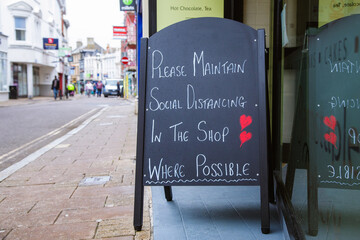 Hot Chocolate, Tea
Please Maintain
Social Distancing
In The Shop
Where Possible